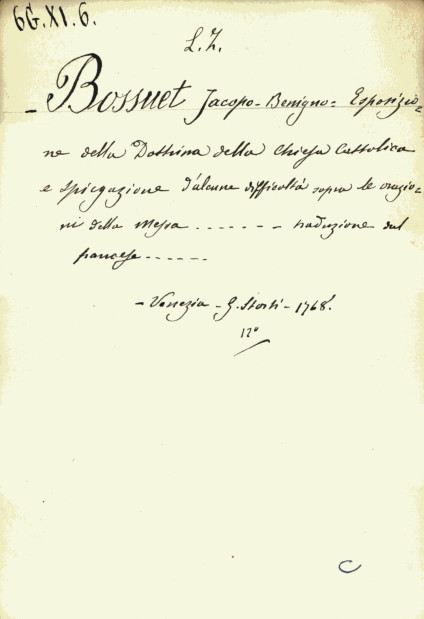 6G.XI.6.
L.Z.
- Bossuet Jacopo-Benigno= Esposizio=
ne della Dottrina della Chiesa Cattolica
e spiegazione d'alcune difficoltà sopra le orazio=
ni della Messa . . . . . . - traduzione dal
francese - - - - - -
- Venezia - G. Storti - 1768.
12°
C